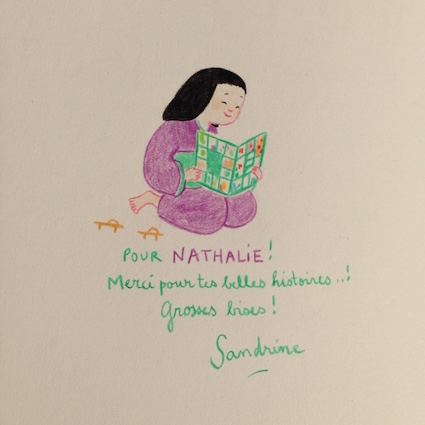 POUR NATHALIE!
Merci pour tes belles histoires..!
Grosses bises!
Sandrine